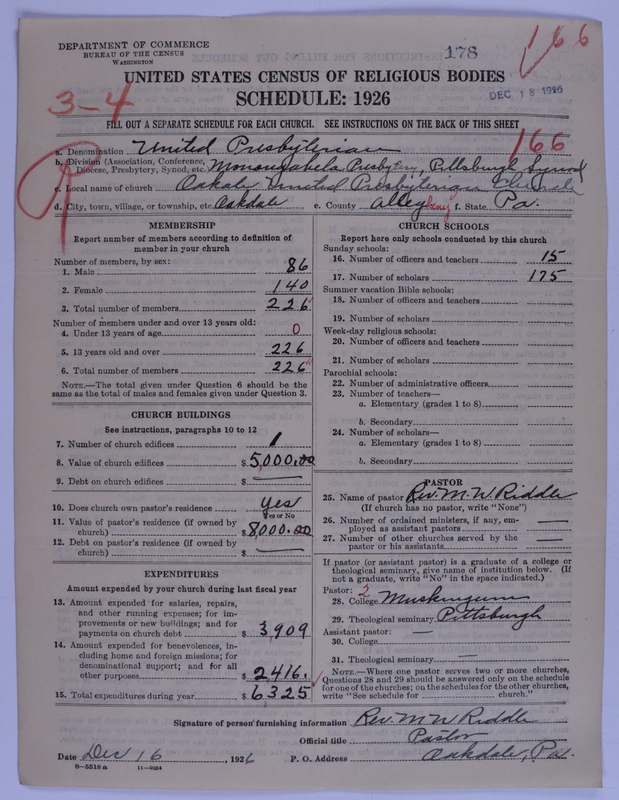 DEPARTMENT OF COMMERCE
BUREAU OF THE CENSUS
WASHINGTON
178
166
UNITED STATES CENSUS OF RELIGIOUS BODIES
SCHEDULE: 1926
DEC 18 1926
3-4
FILL OUT A SEPARATE SCHEDULE FOR EACH CHURCH. SEE INSTRUCTIONS ON THE BACK OF THIS SHEET
166
a. Denomination United Presbyterian
b. Division (Association, Conference, Diocese, Presbytery, Synod, etc.) Monongahela Presbytery, Pittsburgh Synod
c. Local name of church Oakdale United Presbyterian Church
d. City, town, village, or township, etc. Oakdale e. County Allegheny f. State Pa.
MEMBERSHIP
Report number of members according to definition of
member in your church
Number of members, by sex:
1. Male 86
2. Female 140
3. Total number of members 226
Number of members under and over 13 years old:
4. Under 13 years of age 0
5. 13 years old and over 226
6. Total number of members 226
NOTE.—The total given under Question 6 should be the
same as the total of males and females given under Question 3.
CHURCH BUILDINGS
See instructions, paragraphs 10 to 12
7. Number of church edifices 1
8. Value of church edifices $5,000.00
9. Debt on church edifices $ —
10. Does church own pastor's residence yes
Yes or No
11. Value of pastor's residence (if owned by
church) $8,000.00
12. Debt on pastor's residence (if owned by
church) $ —
EXPENDITURES
Amount expended by your church during last fiscal year
13. Amount expended for salaries, repairs,
and other running expenses; for im-
provements or new buildings; and for
payments on church debt $3,909
14. Amount expended for benevolences, in-
cluding home and foreign missions; for
denominational support; and for all
other purposes $2416.
15. Total expenditures during year $6325
CHURCH SCHOOLS
Report here only schools conducted by this church
Sunday schools:
16. Number of officers and teachers 15
17. Number of scholars 175
Summer vacation Bible schools:
18. Number of officers and teachers
19. Number of scholars
Week-day religious schools:
20. Number of officers and teachers
21. Number of scholars
Parochial schools:
22. Number of administrative officers
23. Number of teachers—
a. Elementary (grades 1 to 8)
b. Secondary
24. Number of scholars—
a. Elementary (grades 1 to 8)
b. Secondary
PASTOR
25. Name of pastor Rev. M. W. Riddle
(If church has no pastor, write "None")
26. Number of ordained ministers, if any, em-
ployed as assistant pastors —
27. Number of other churches served by the
pastor or his assistants —
If pastor (or assistant pastor) is a graduate of a college or
theological seminary, give name of institution below. (If
not a graduate, write "No" in the space indicated.)
Pastor: 2
28. College Muskingum
29. Theological seminary Pittsburgh
Assistant pastor: —
30. College
31. Theological seminary —
NOTE.—Where one pastor serves two or more churches,
Questions 28 and 29 should be answered only on the schedule
for one of the churches; on the schedules for the other churches,
write "See schedule for church."
Signature of person furnishing information Rev. M. W. Riddle
Official title Pastor
Date Dec 16, 1926 P. O. Address Oakdale, Pa.
8—5318 a 11—9264